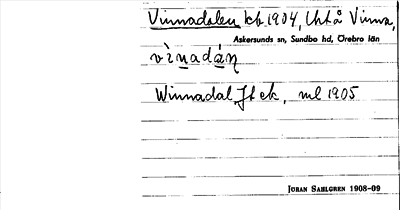 Vinnadalen kb 1904, Vinna,
Askersunds sn, Sundbo hd, Örebro län
vìnadán
Winnadal Jf ek, ml 1905
JÖRAN SAHLGREN 1908-09